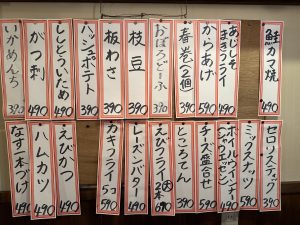 鮭カマ焼
490
あじしそ
まきフライ
490
からあげ
590
春巻(2個)
390
おぼろどーふ
390
枝豆
390
板わさ
390
ハッシュポテト
390
ししとういため
490
がつ刺
490
いかめんち
390
セロリスティック
390
ミックスナッツ
590
ボイルウインナー
490
チーズ盛合せ
590
ところてん
390
えびフライ
2本
690
レーズンバター
490
カキフライ5コ
590
えびかつ
490
ハムカツ
490
なす一本づけ
490